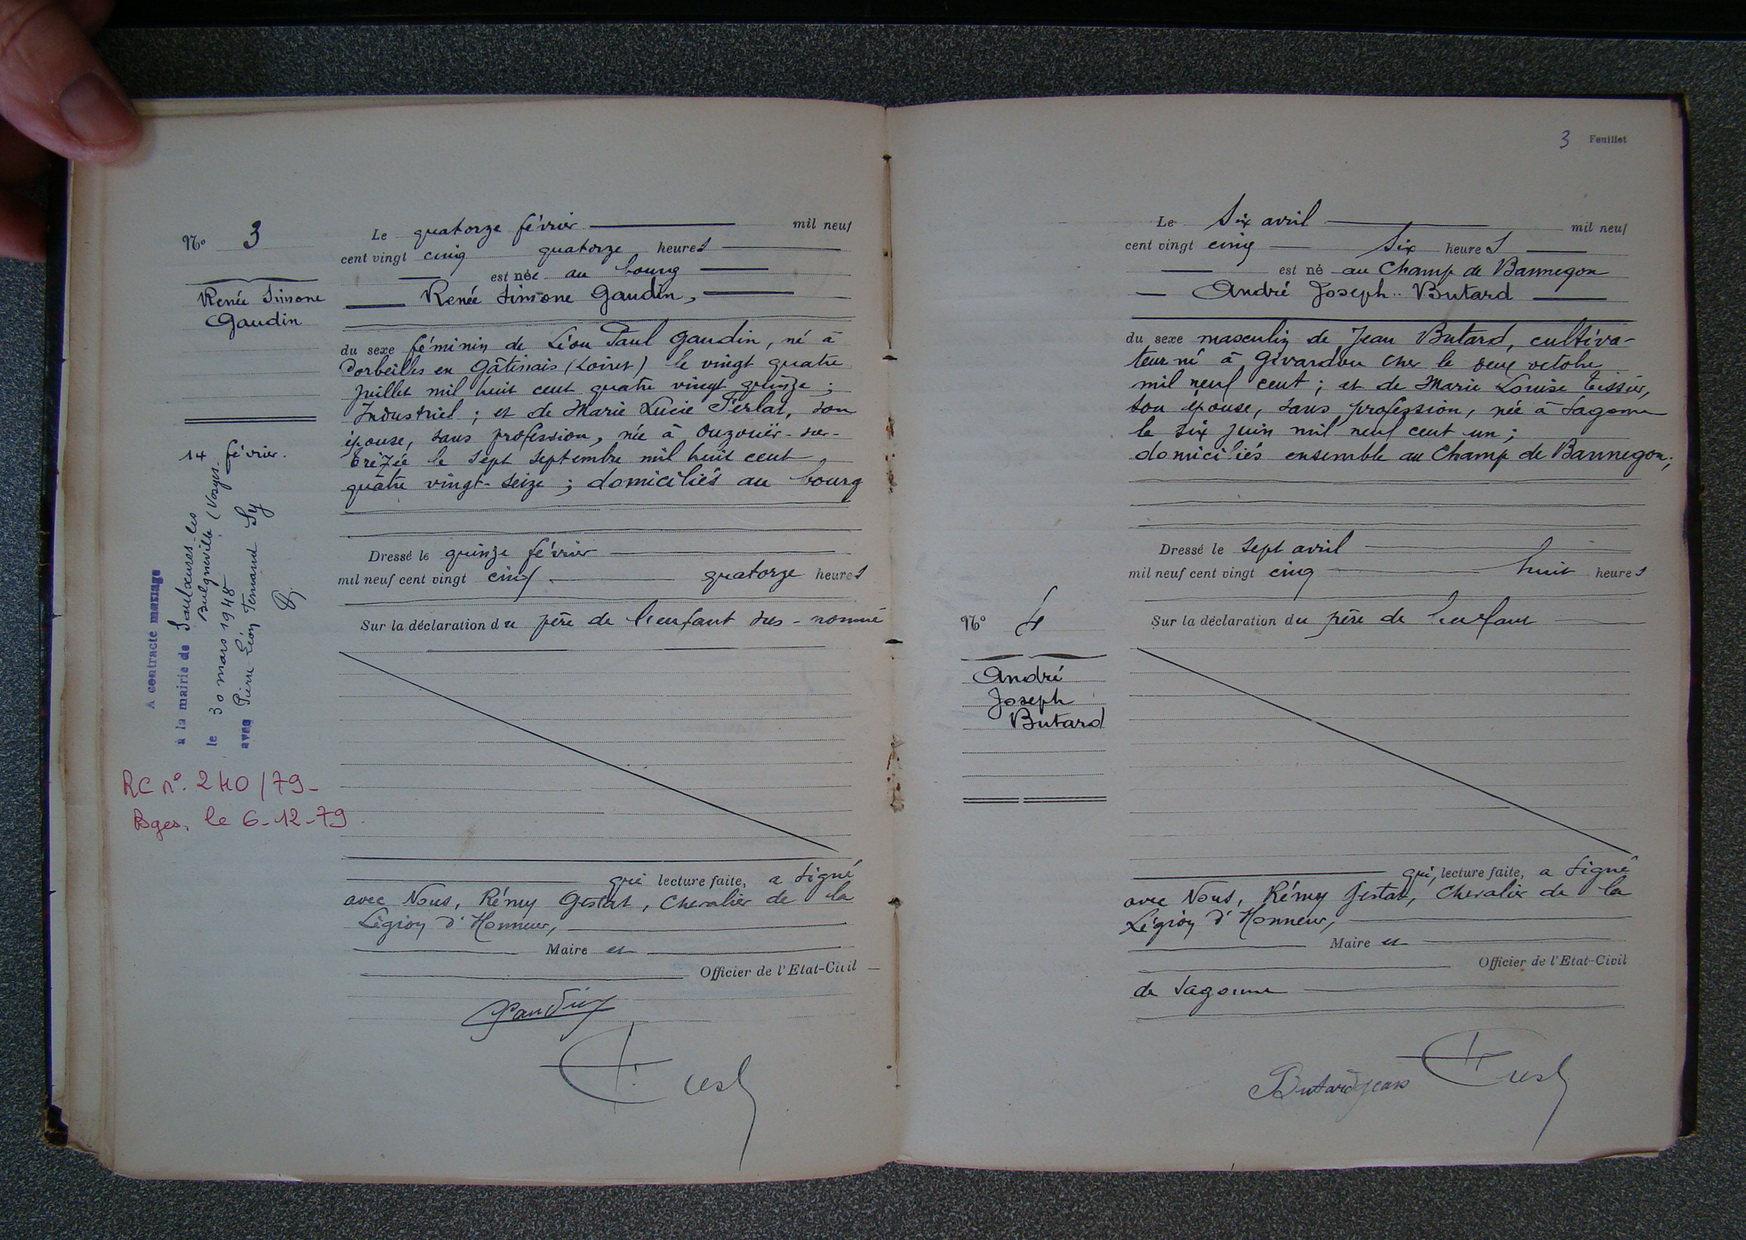 Nº 3
Renée Simone
Gaudin
14 février.
A contracte mariage
à la mairie de Saulxures-les
Bulgnéville (Vosges)
le 30 mars 1948
avec Pierre Léon Fernand Sy
RC nº. 240/79-
Bges, le 6-12-79
Le quatorze février mil neuf
cent vingt cinq quatorze heures
est née au bourg
Renée Simone Gaudin,
du sexe féminin de Léon Paul Gaudin, né à
Corbeilles en Gâtinais (Loiret) le vingt quatre
Juillet mil huit cent quatre vingt quinze ;
Industriel ; et de Marie Lucie Ferlat, son
épouse, sans profession, née à Ouzouër-sur-
Trézée le sept septembre mil huit cent
quatre vingt-seize ; domiciliés au bourg
Dressé le quinze février
mil neuf cent vingt cinq quatorze heures
Sur la déclaration du père de l'enfant sus-nommé
qui lecture faite, a signé
avec Nous, Rémy Gestat, Chevalier de la
Légion d'Honneur,
Maire et
Officier de l'Etat-Civil
Gaudin
3 Feuillet
Nº 4
André
Joseph
Butard
Le six avril mil neuf
cent vingt cinq six heures
est né au Champ de Bannegon
André Joseph Butard
du sexe masculin de Jean Butard, cultiva-
teur né à Givardon Cher le deux octobre
mil neuf cent ; et de Marie Louise Tissier,
son épouse, sans profession, née à Sagonne
le six juin mil neuf cent un ;
domiciliés ensemble au Champ de Bannegon ;
Dressé le sept avril
mil neuf cent vingt cinq huit heures
Sur la déclaration du père de l'enfant
qui, lecture faite, a signé
avec Nous, Rémy Gestat, Chevalier de la
Légion d'Honneur,
Maire et
Officier de l'Etat-Civil
de Sagonne
Butard Jean